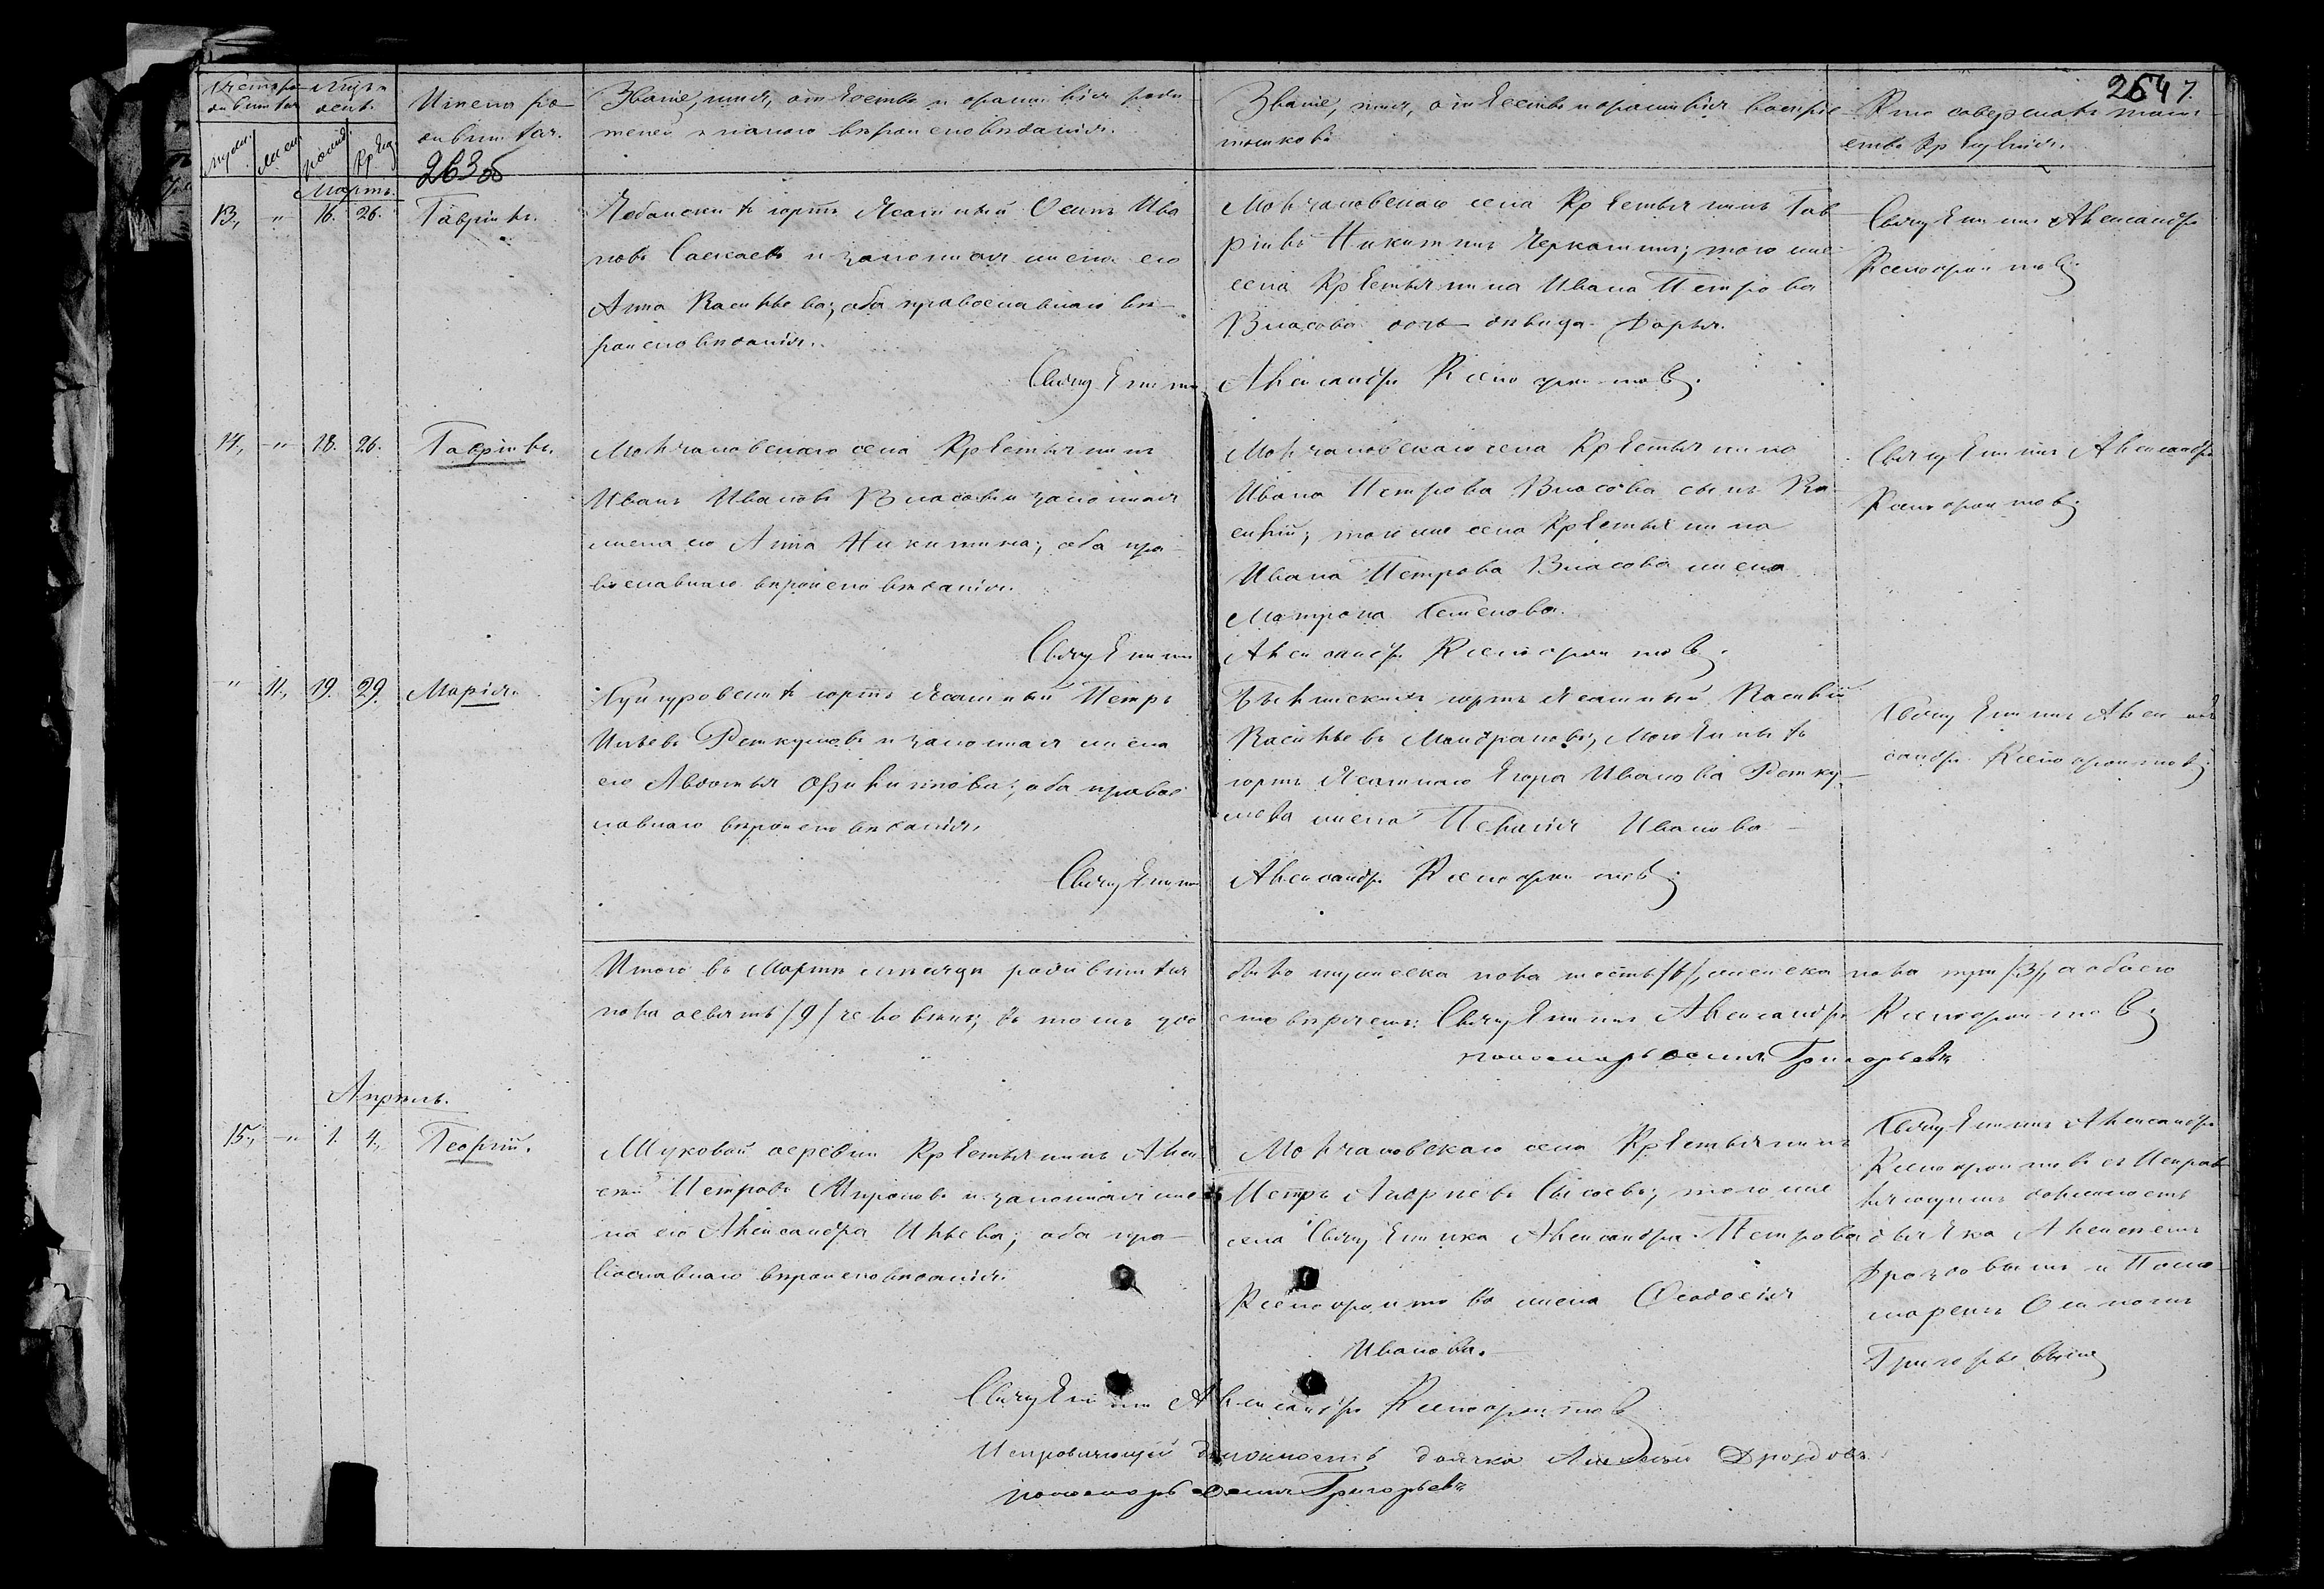 Счетъ ро-
дившихся
Мѣсяцъ и
день.
муж.
жен.
рожд.
крещ.
Имена ро-
дившихся.
263 об
Званіе, имя, отчество и фамилія роди-
телей и какого вѣроисповѣданія.
Званіе, имя, отчество и фамилія воспріе-
мниковъ
Кто совершалъ таин-
ство крещенія.
264
7.
Мартъ.
13., " 16. 26. Гавріилъ.
юртъ Ясашный Осипъ Ива
новъ и законная жена его
Анна Васильева; оба православнаго вѣ-
роисповѣданія.
Молчановскаго села Крестьянинъ Гав-
ріилъ Никитинъ Черкашинъ; того же
села Крестьянина Ивана Петрова
Власова дочь дѣвица Дарья.
Священникъ Александръ
Ксенофонтовъ
Священникъ Александръ Ксенофонтовъ.
14., " 18. 26. Гавріилъ.
Молчановскаго села Крестьянинъ
Иванъ Ивановъ Власовъ и законная
жена его Анна Никитина; оба пра-
вославнаго вѣроисповѣданія.
Молчановскаго села Крестьянина
Ивана Петрова Власова сынъ Ва-
силій; того же села Крестьянина
Ивана Петрова Власова жена
Матрона Семенова.
Священникъ Александръ
Ксенофонтовъ
Священникъ Александръ Ксенофонтовъ.
" 11., 19. 29. Марія.
юртъ Ясашный Петръ
и законная жена
его Авдотья Филипова; оба правос
лавнаго вѣроисповѣданія.
юртъ Ясашный Василій
Васильевъ
юртъ Ясашнаго Егора Иванова
жена Пелагія Иванова
Священникъ Алек-
сандръ Ксенофонтовъ
Священникъ Александръ Ксенофонтовъ
Итого въ Мартѣ мѣсяцѣ родившихся было мужеска пола шесть /6/, женска пола три /3/, а обоего
пола девять /9/ человѣкъ; въ томъ удостовѣряемъ: Священникъ Александръ Ксенофонтовъ
пономарь Осипъ Григорьевъ
Апрѣль.
15., " 1. 4., Георгій.
деревни Крестьянинъ Алек
сѣй Петровъ Мироновъ и законная же
на его Александра Ильева; оба пра-
вославнаго вѣроисповѣданія.
Молчановскаго села Крестьянинъ
Петръ Андреевъ Сысоевъ; того же
села Священника Александра Петрова
Ксенофонтова жена Феодосія
Иванова.
Священникъ Александръ
Ксенофонтовъ съ Исправ
ляющимъ должность
дьячка Алексѣемъ
Дроздовымъ и Поно-
маремъ Осипомъ
Григорьевымъ
Священникъ Александръ Ксенофонтовъ
Исправляющій должность дьячка Алексѣй Дроздовъ
пономарь Осипъ Григорьевъ